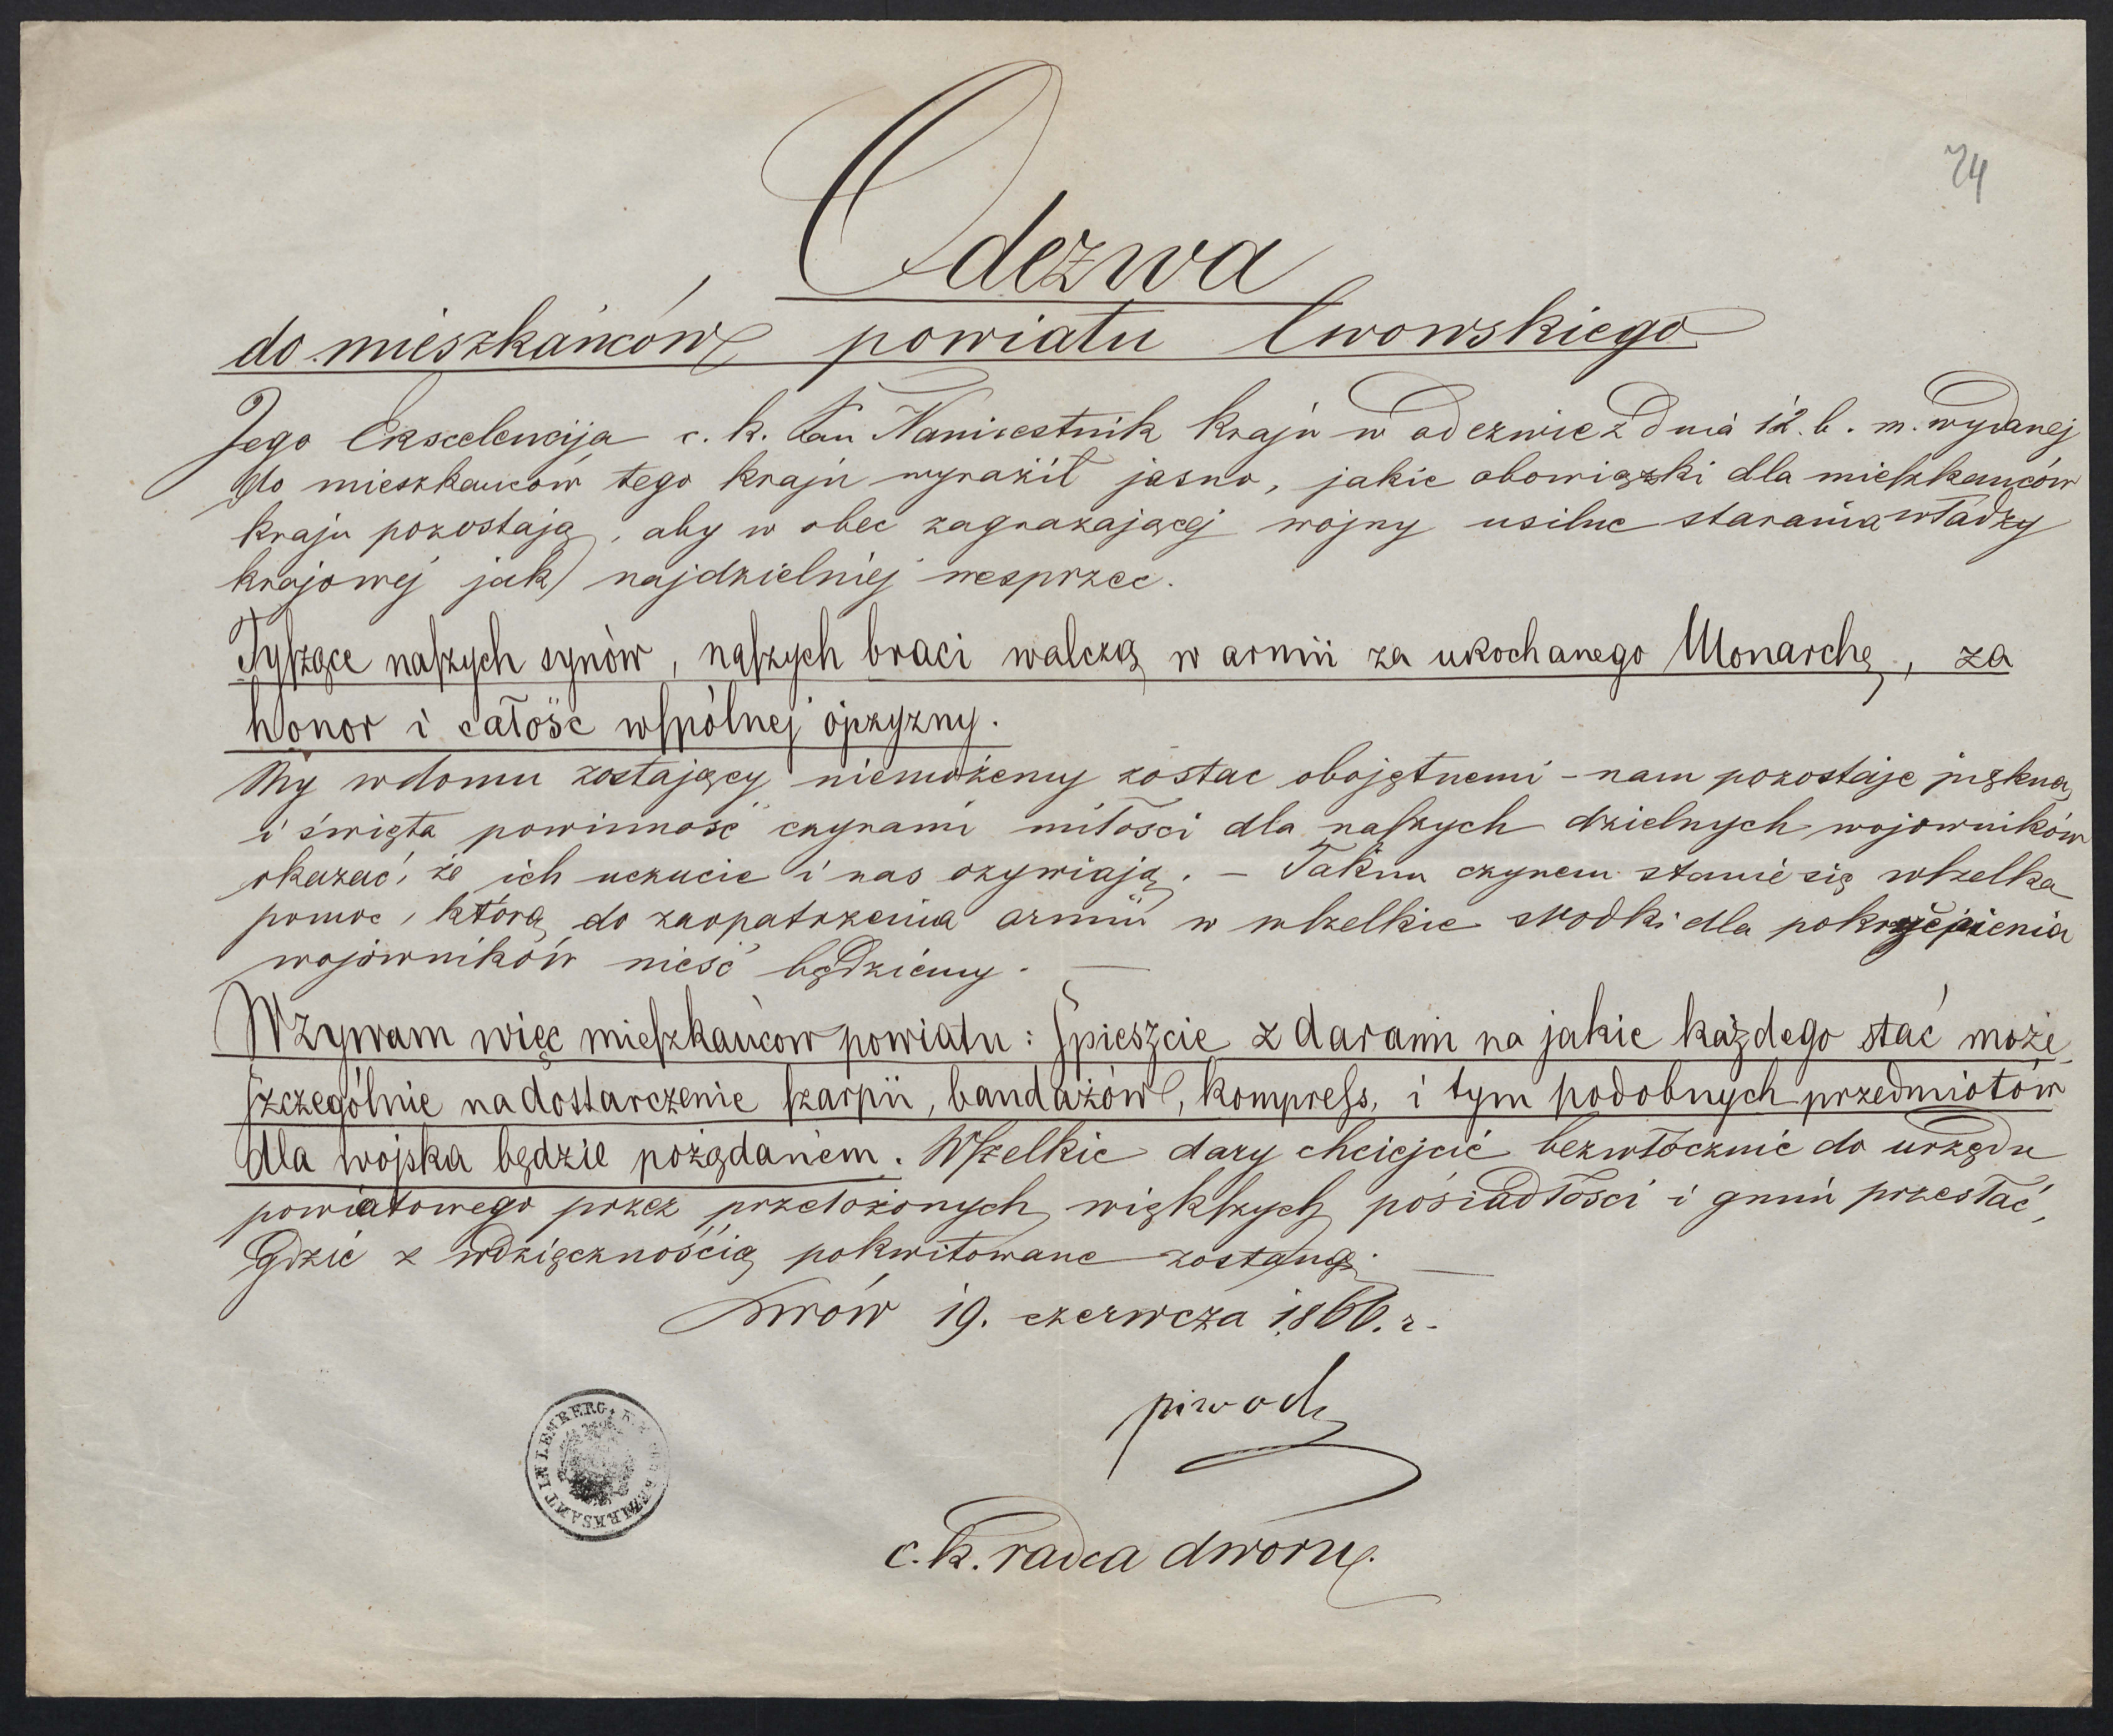 74
Odezwa
do mieszkańców powiatu lwowskiego
Jego Ekscelencija c. k. Pan Namiestnik kraju w odezwie z dnia 12. b. m. wydanej
do mieszkańców tego kraju wyraził jasno, jakie obowiązki dla mieszkańców
kraju pozostają, aby w obec zagrażającej wojny usilne starania władzy
krajowej jak najdzielniej wesprzec.
Tyszące naszych synów, naszych braci walczą w armii za ukochanego Monarchę, za
honor i całość wspólnej ojczyzny.
My w domu zostający niemożemy zostac obojętnemi - nam pozostaje piękna
i święta powinność czynami miłości dla naszych dzielnych wojowników
okazać, że ich uczucie i nas ożywiają. - Takim czynem stanie się wszelka
pomoc, którą do zaopatrzenia armii w wszelkie srodki dla pokrzepienia
wojowników nieść będziemy. —
Wzywam więc mieszkańcow powiatu: spieszcie z darami na jakie każdego stać może,
szczególnie na dostarczenie szarpii, bandażów, kompress, i tym podobnych przedmiotów
dla wojska będzie pożądanem. Wszelkie dary chciejcie bezwłocznie do urzędu
powiatowego przez przełożonych większych posiadłości i gmin przesłać,
gdzie z wdzięcznością pokwitowane zostaną. —
Lwów 19. czerwcza 1866. r.
c. k. radca dworu.
BEZIRKSAMT IN LEMBERG